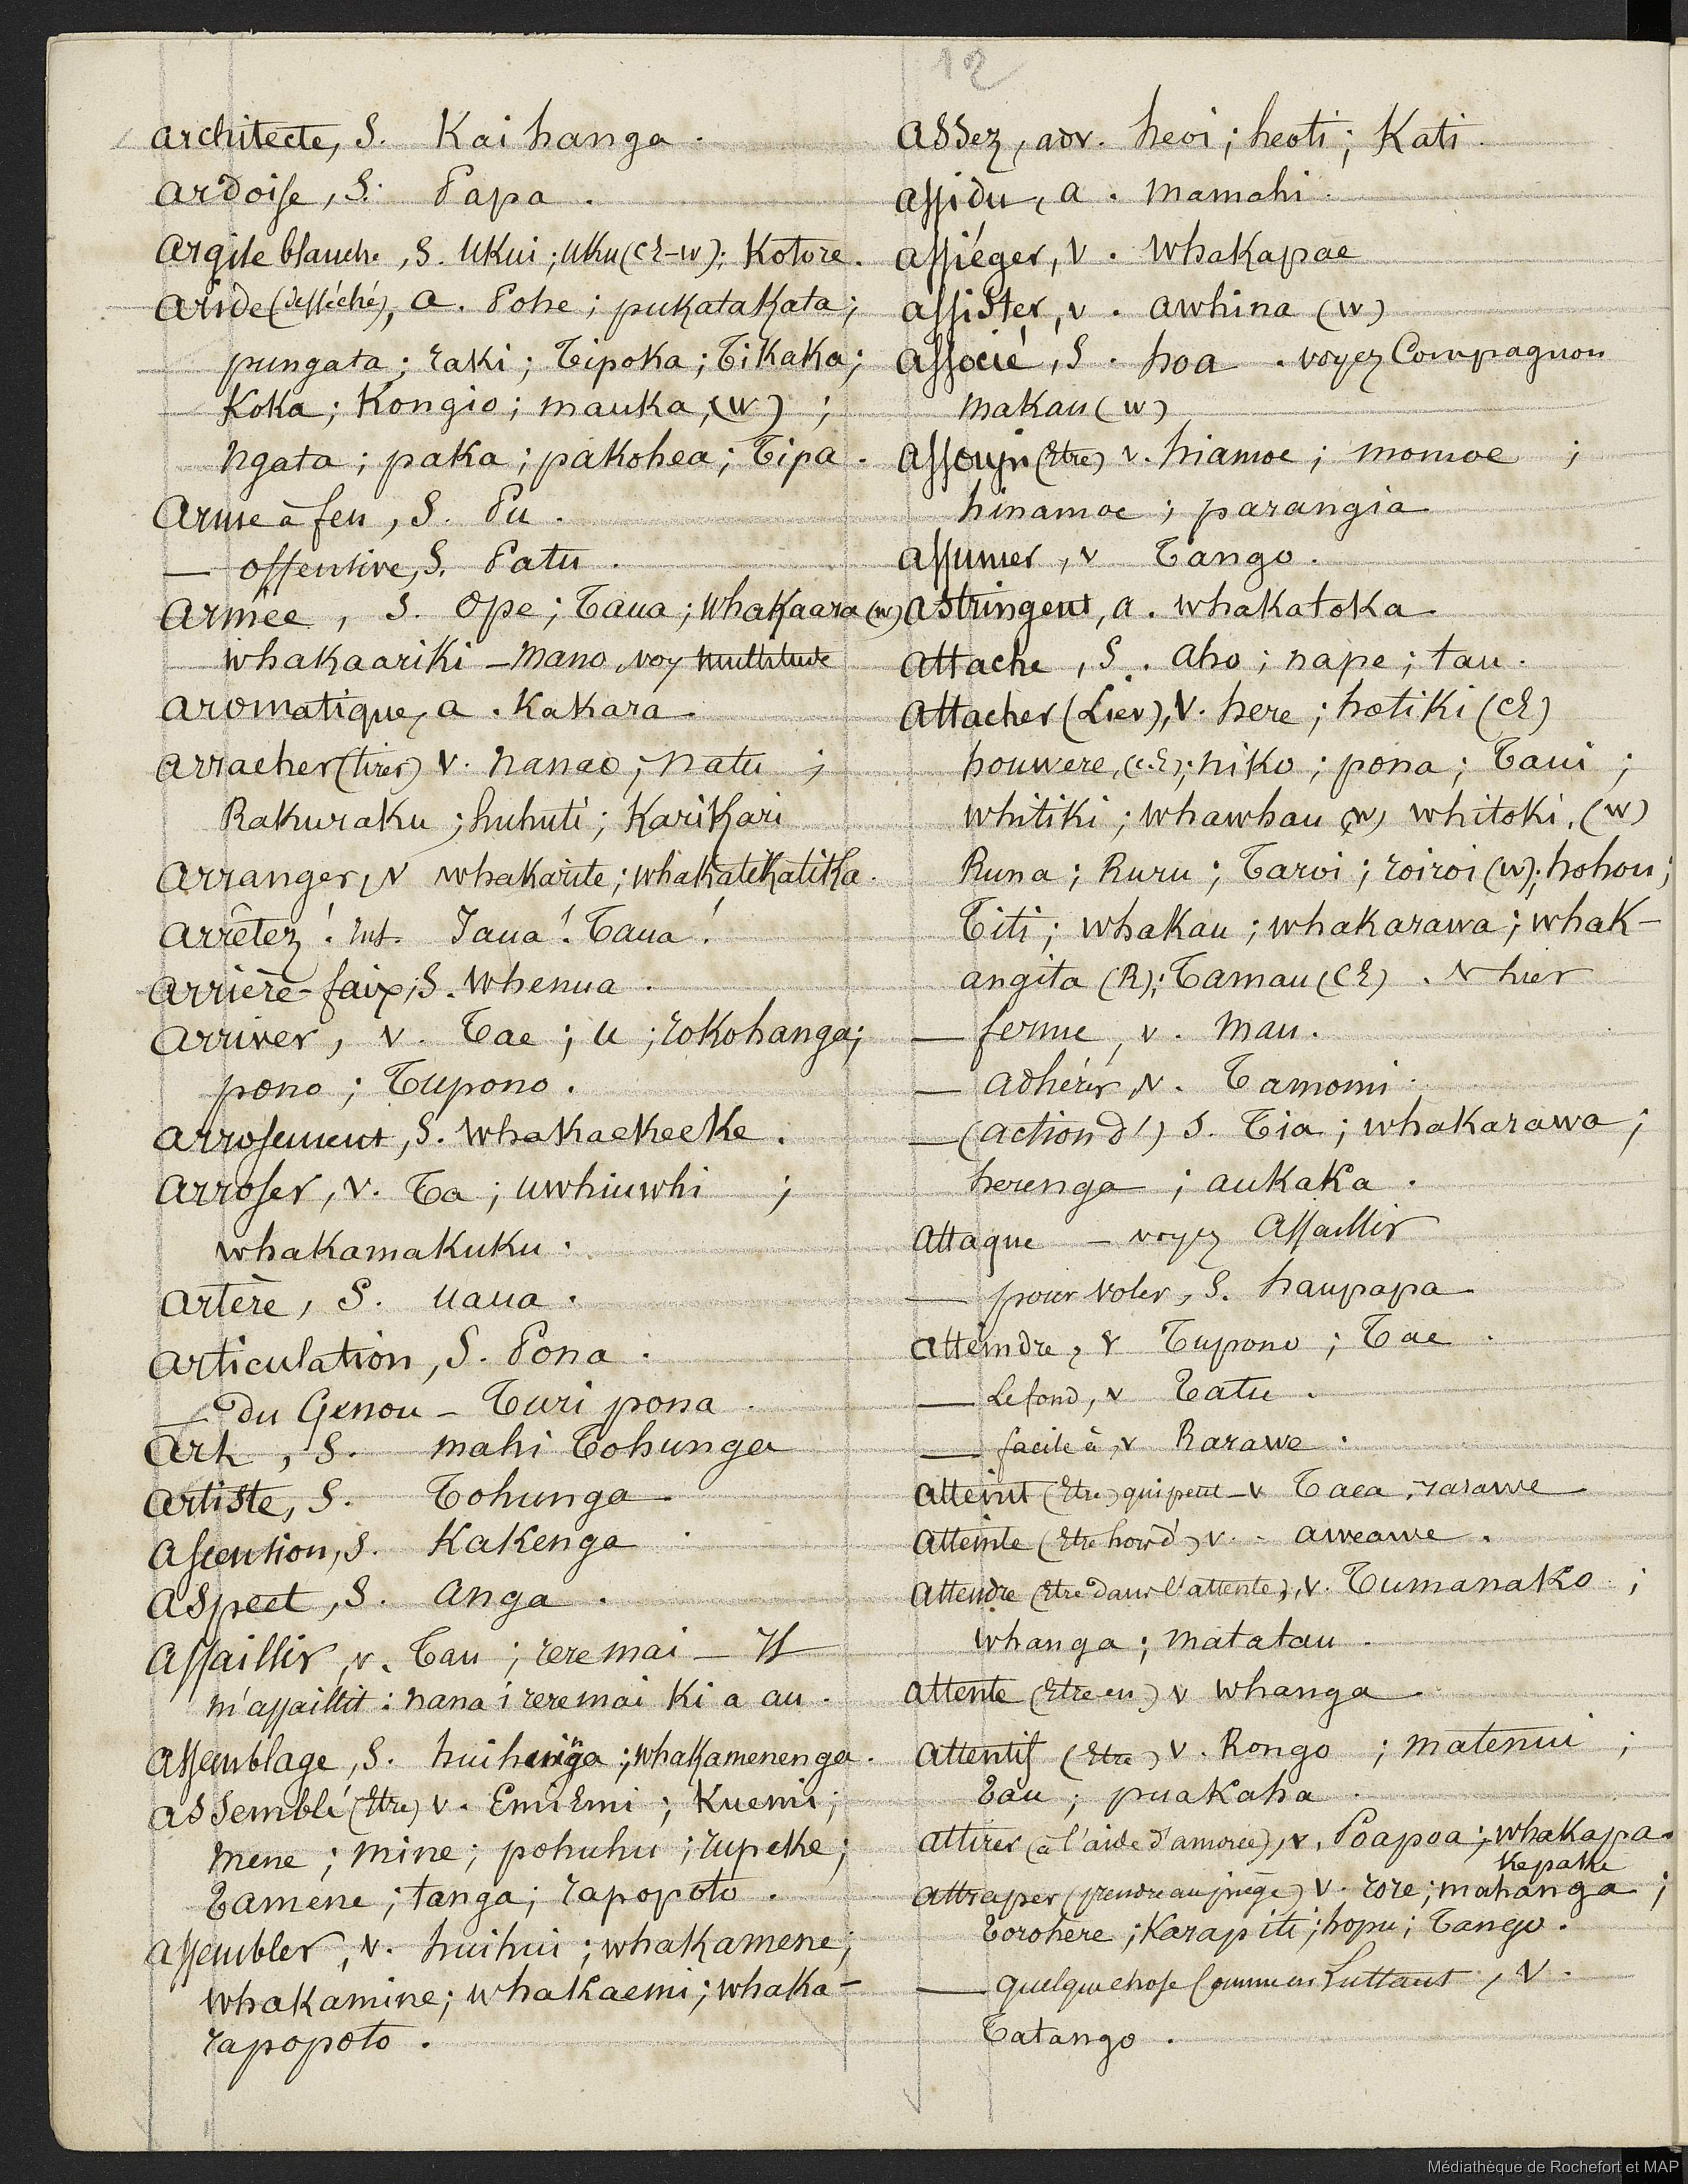 12
architecte, S. Kai hanga.
ardoise, S. Papa.
argile blanche, S. Ukui; uku (cE-w); Kotore.
aride (desséché), a. Pohe; pukatakata;
pungata; raki; Tipoka; Tikaka;
Koka; Kongio; mauka, (w);
ngata; paka; pakohea; Tipa.
Arme à feu, S. Pu.
— offensive, S. Patu.
Armée, S. Ope; Taua; Whakaara (w)
whakaariki – mano, voy multitude
aromatique, a. Kakara.
arracher (tirer) v. nanao; natu;
Rakuraku; huhuti; Karikari
arranger, v whakarite; whakatikatika.
arrêtez! int. Taua! Taua!
arrière-faix, S. Whenua.
arriver, v. Tae; u; rokohanga;
pono; Tupono.
arrosement, S. Whakaekeeke.
arroser, v. Ta; uwhiuwhi;
whakamakuku.
artère, S. uaua.
articulation, S. Pona.
— du Genou – Turi pona.
Art, S. mahi Tohunga
artiste, S. Tohunga
ascension, S. Kakenga
aspect, S. anga.
assaillir, v. Tau; rere mai – Il
m'assaillit: nana i rere mai Ki a au.
assemblage, S. huihuinga; whakamenenga.
assemblé (Etre) v. EmiEmi; Kuemi;
mene; mine; pohuhu; rupeke;
Tamene; tanga; rapopoto.
assembler, v. huihui; whakamene;
whakamine; whakaemi; whaka-
rapopoto.
assez, adv. heoi; heoti; Kati.
assidu, a. mamahi.
assiéger, v. whakapae
assister, v. awhina (w)
associé, S. hoa. voyez Compagnon
makau (w)
assoupi (Etre) v. hiamoe; momoe;
hinamoe; parangia
assumer, v Tango.
astringent, a. whakatoka.
attache, S. aho; nape; tau.
attacher (Lier), v. here; hotiki (cE)
houwere, (c.E); niko; pona; Taui;
whitiki; whawhau (w) whitoki, (w)
Runa; Ruru; Taroi; roiroi (w); hohou;
Titi; whakau; whakarawa; whak-
angita (R); Tamau (CE). v hier
— ferme, v. mau.
— adhérer, v. Tamomi.
— (action d') S. Tia; whakarawa;
herenga; aukaka.
attaque – voyez assaillir
— pour voler, S. haupapa
atteindre, v Tupono; Tae.
— Le fond, v Tatu.
— facile à, v Rarawe.
atteint (Etre) qui peut – v Taea, rarawe
atteinte (Etre hors d') v. aweawe.
attendre (Etre dans l'attente), v. Tumanako;
whanga; matatau.
attente (Etre en) v whanga
attentif (Etre) v. Rongo; matenui;
Tau; puakaha.
attirer (à l'aide d'amorce), v. Poapoa; whakapa.
kepake
attraper (prendre au piège) v. rore; mahanga;
Torohere; Karapiti; hopu; Tango.
— quelque chose comme en Luttant, v.
Tatango.
Médiathèque de Rochefort et MAP